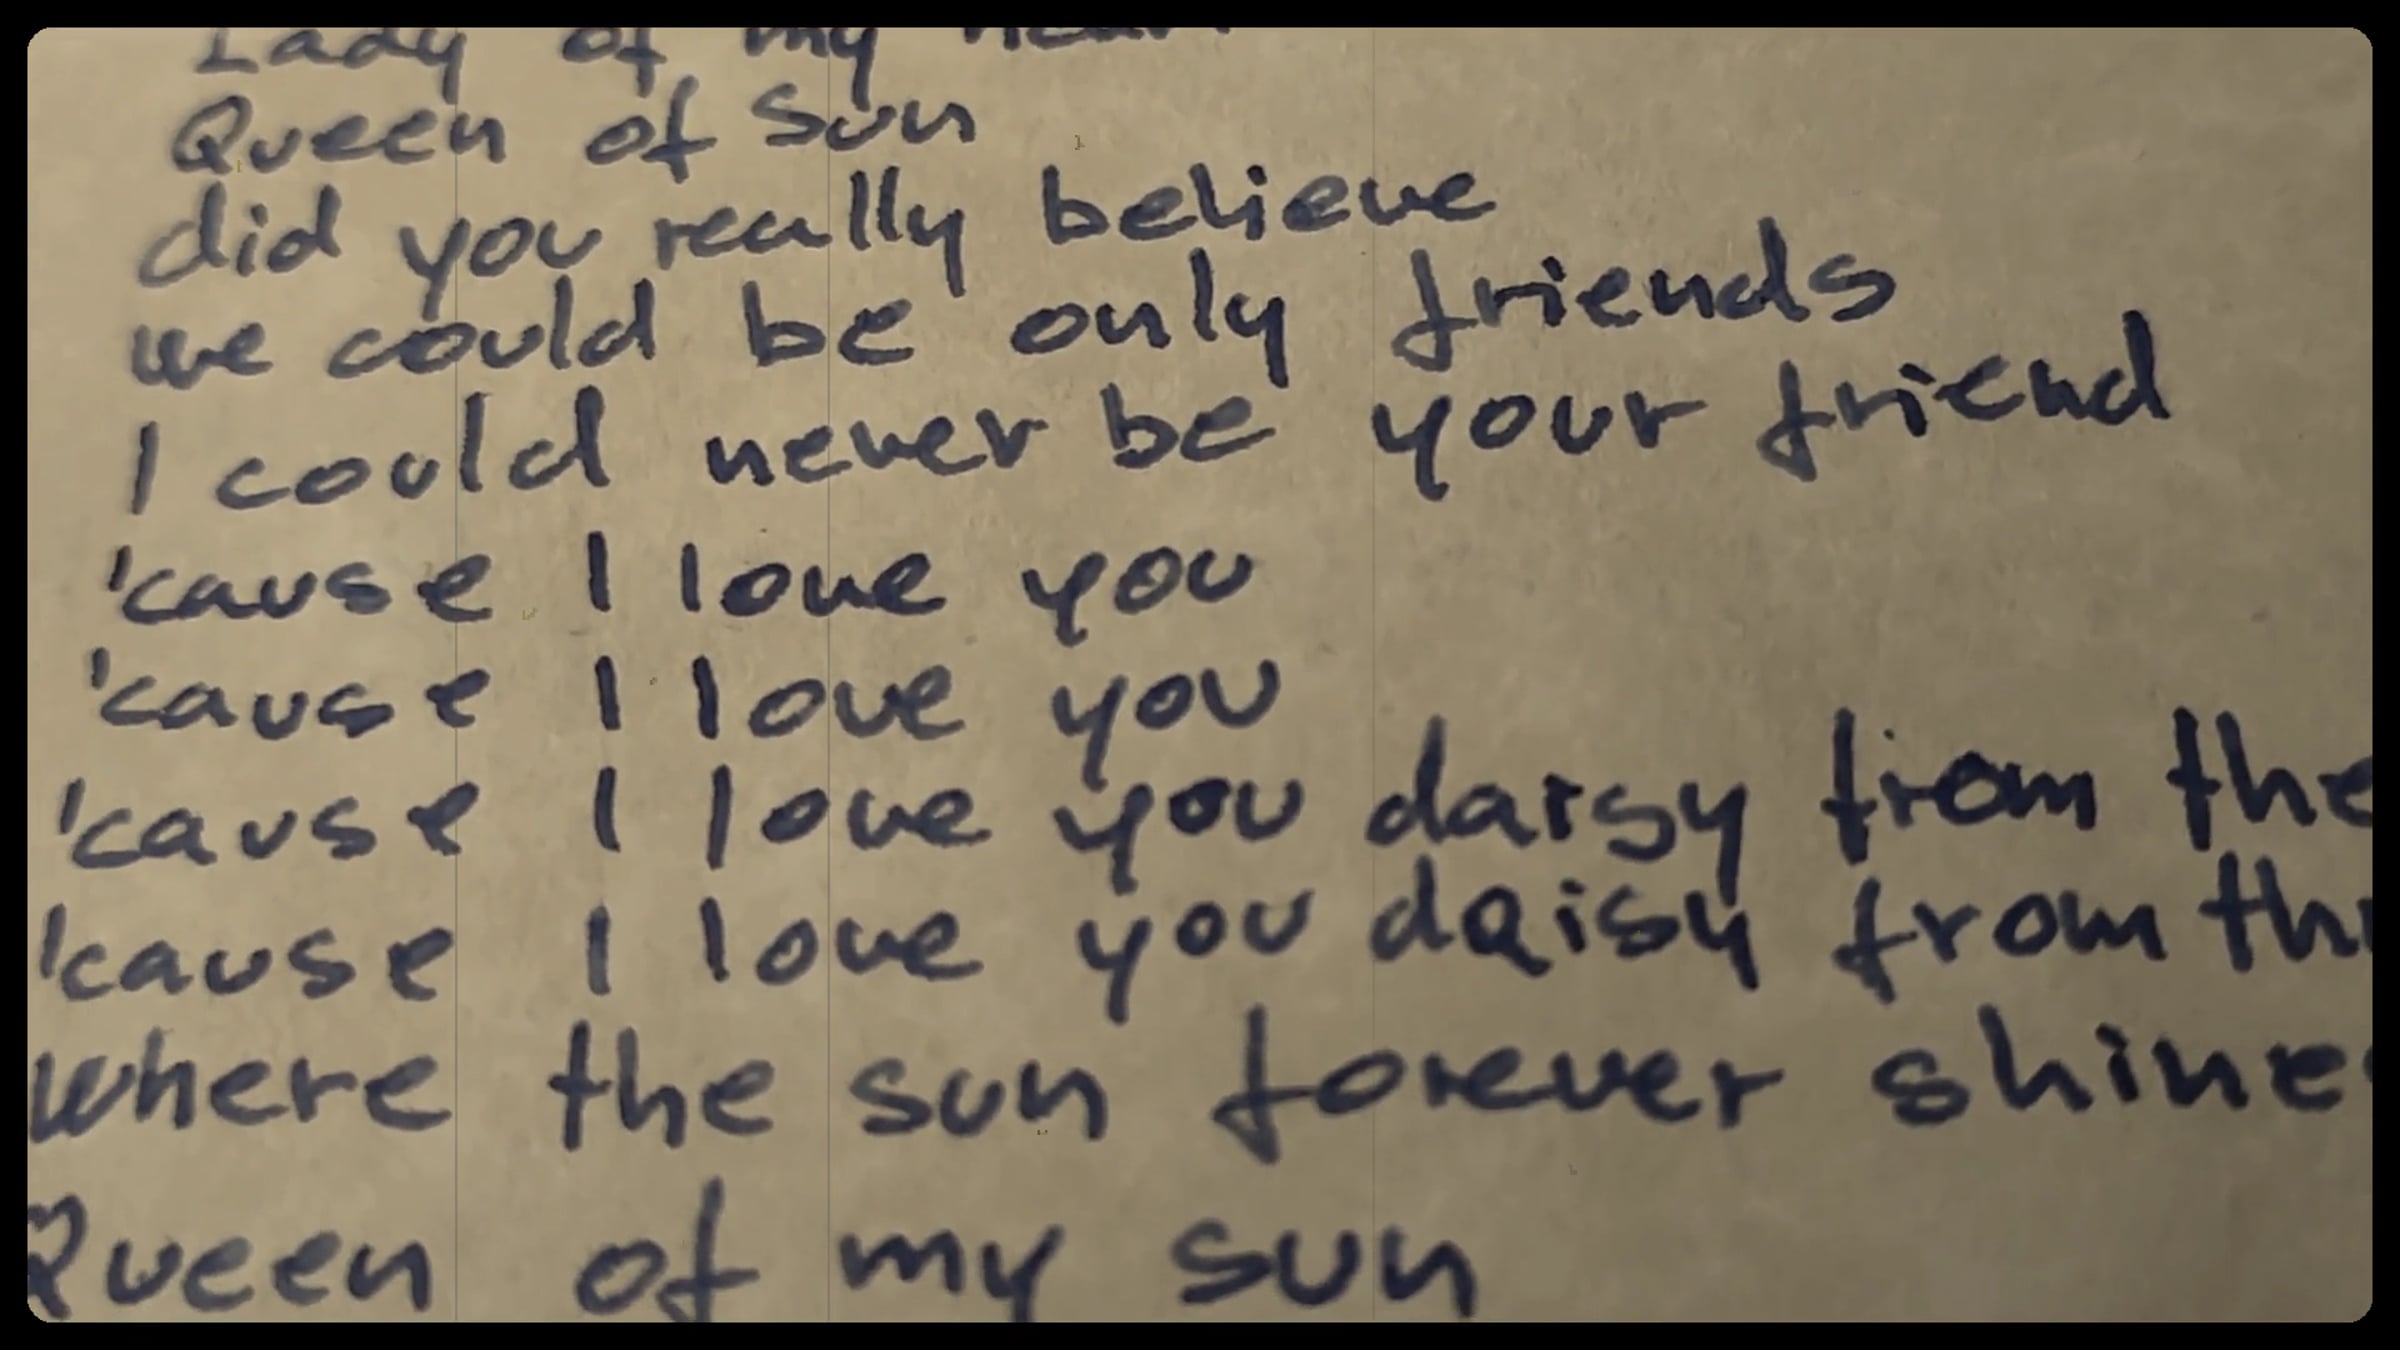 Lady of my heart
Queen of Sun
did you really believe
we could be only friends
I could never be your friend
'cause I love you
'cause I love you
'cause I love you daisy from the
'cause I love you daisy from
where the sun forever shines
Queen of my sun